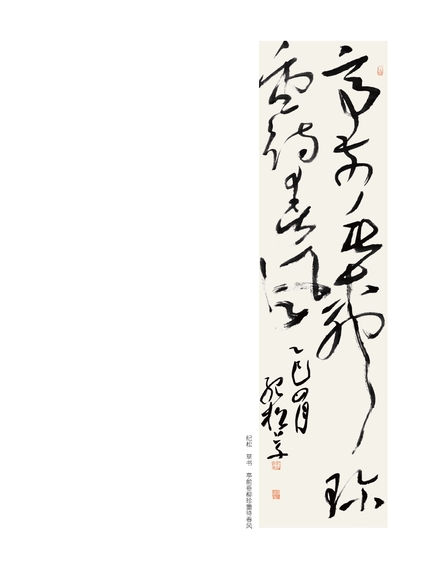 亭前垂柳珍
重待春風
乙巳四月
紀松草
纪松 草书 亭前垂柳珍重待春风